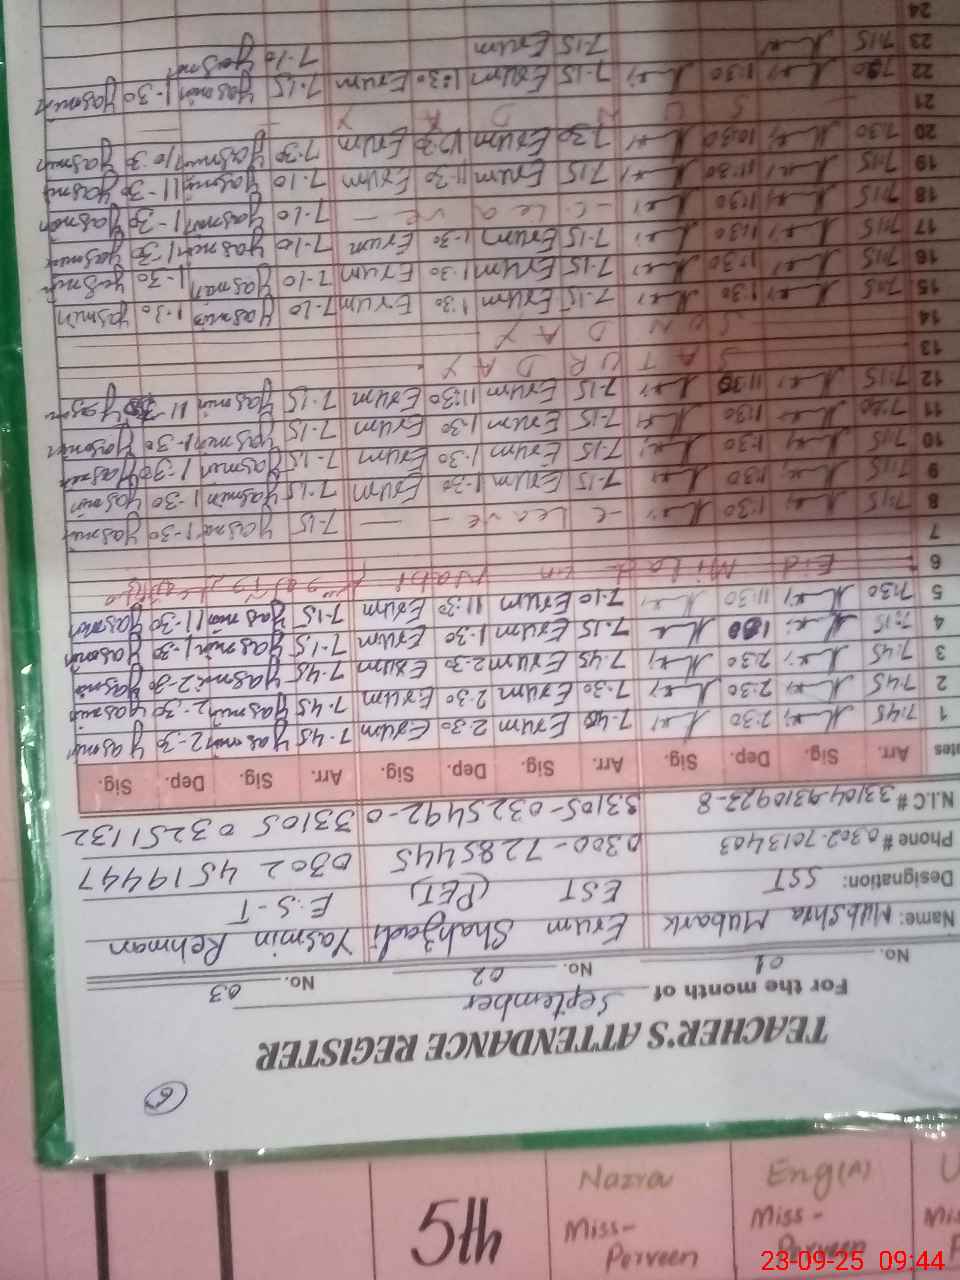 TEACHER'S ATTENDANCE REGISTER
For the month of September
No. 01 No. 02 No. 03
Name: Mubshra Mubark Erum Shahzadi Yasmin Rehman
Designation: SST EST (PET) E.S-T
Phone # 0302-7013403 0300-7285445 0302 4519447
N.I.C # 33104-9310923-8 33105-0325492-0 33105 03251132
Arr. Sig. Dep. Sig. Arr. Sig. Dep. Sig. Arr. Sig. Dep. Sig.
1 7:45 2:30 Erum 2.30 Erum 7.45 Yasmin 2-30 Yasmin
2 7:45 2:30 7.30 Erum 2.30 Erum 7.45 Yasmin 2-30 Yasmin
3 7:45 2:30 7.45 Erum 2.30 Erum 7-45 Yasmin 2-30 Yasmin
4 7:15 7.15 Erum 1.30 Erum 7.15 Yasmin 1-30 Yasmin
5 7:30 11:30 7.10 Erum 11:30 Erum 7-15 Yasmin 11-30 Yasmin
6 Eid Milad un Nabi
7
8 7:15 1:30 - C Leave - 7-15 Yasmin 1-30 Yasmin
9 7:15 1:30 7-15 Erum 1.30 Erum 7-15 Yasmin 1-30 Yasmin
10 7:15 1:30 7.15 Erum 1.30 Erum 7-15 Yasmin 1-30 Yasmin
11 7:20 11:30 7.15 Erum 1.30 Erum 7-15 Yasmin 1-30 Yasmin
12 7:15 7-15 Erum 11:30 Erum 7.15 Yasmin 11-30 Yasmin
13 SATURDAY
14 SUNDAY
15 7:15 1:30 7-15 Erum 1:30 Erum 7-10 Yasmin 1-30 Yasmin
16 7:15 1:30 7.15 Erum 1.30 Erum 7-10 Yasmin 1-30 Yasmin
17 7:15 7-15 Erum 1.30 Erum 7-10 Yasmin 1-30 Yasmin
18 7:15 11:30 - C. Leave - 7-10 Yasmin 1-30 Yasmin
19 7:15 11:30 7.15 Erum 11.30 Erum 7.10 Yasmin 11-30 Yasmin
20 7:30 10:30 7.30 Erum Erum 7-30 Yasmin 10:30 Yasmin
21 SUNDAY
22 1:30 7-15 Erum 1:30 Erum 7.15 Yasmin 1-30 Yasmin
23 7:15 7:15 Erum 7-10 Yasmin
24
5th
Nazra
Miss-
Perveen
Eng(A)
Miss-
Perveen
23-09-25 09:44